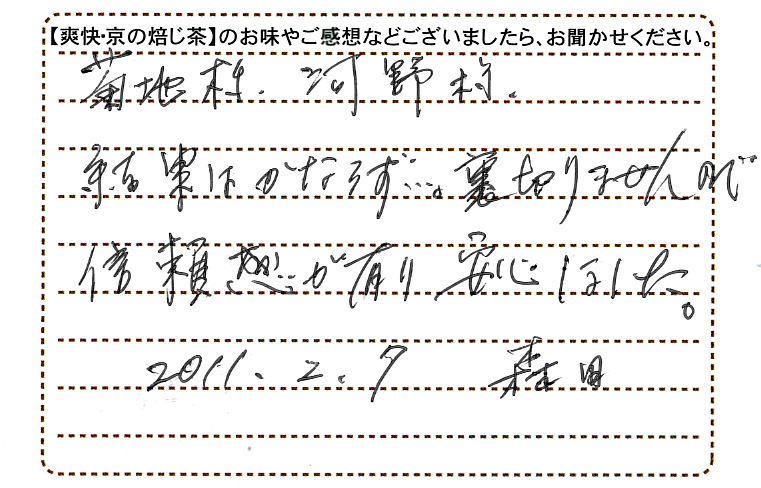 【爽快・京の焙じ茶】のお味やご感想などございましたら、お聞かせください。
菊地様. 河野様.
結果はかならず…。裏切りませんので
信頼感が有り 安心しました。
2011.2.7 森田